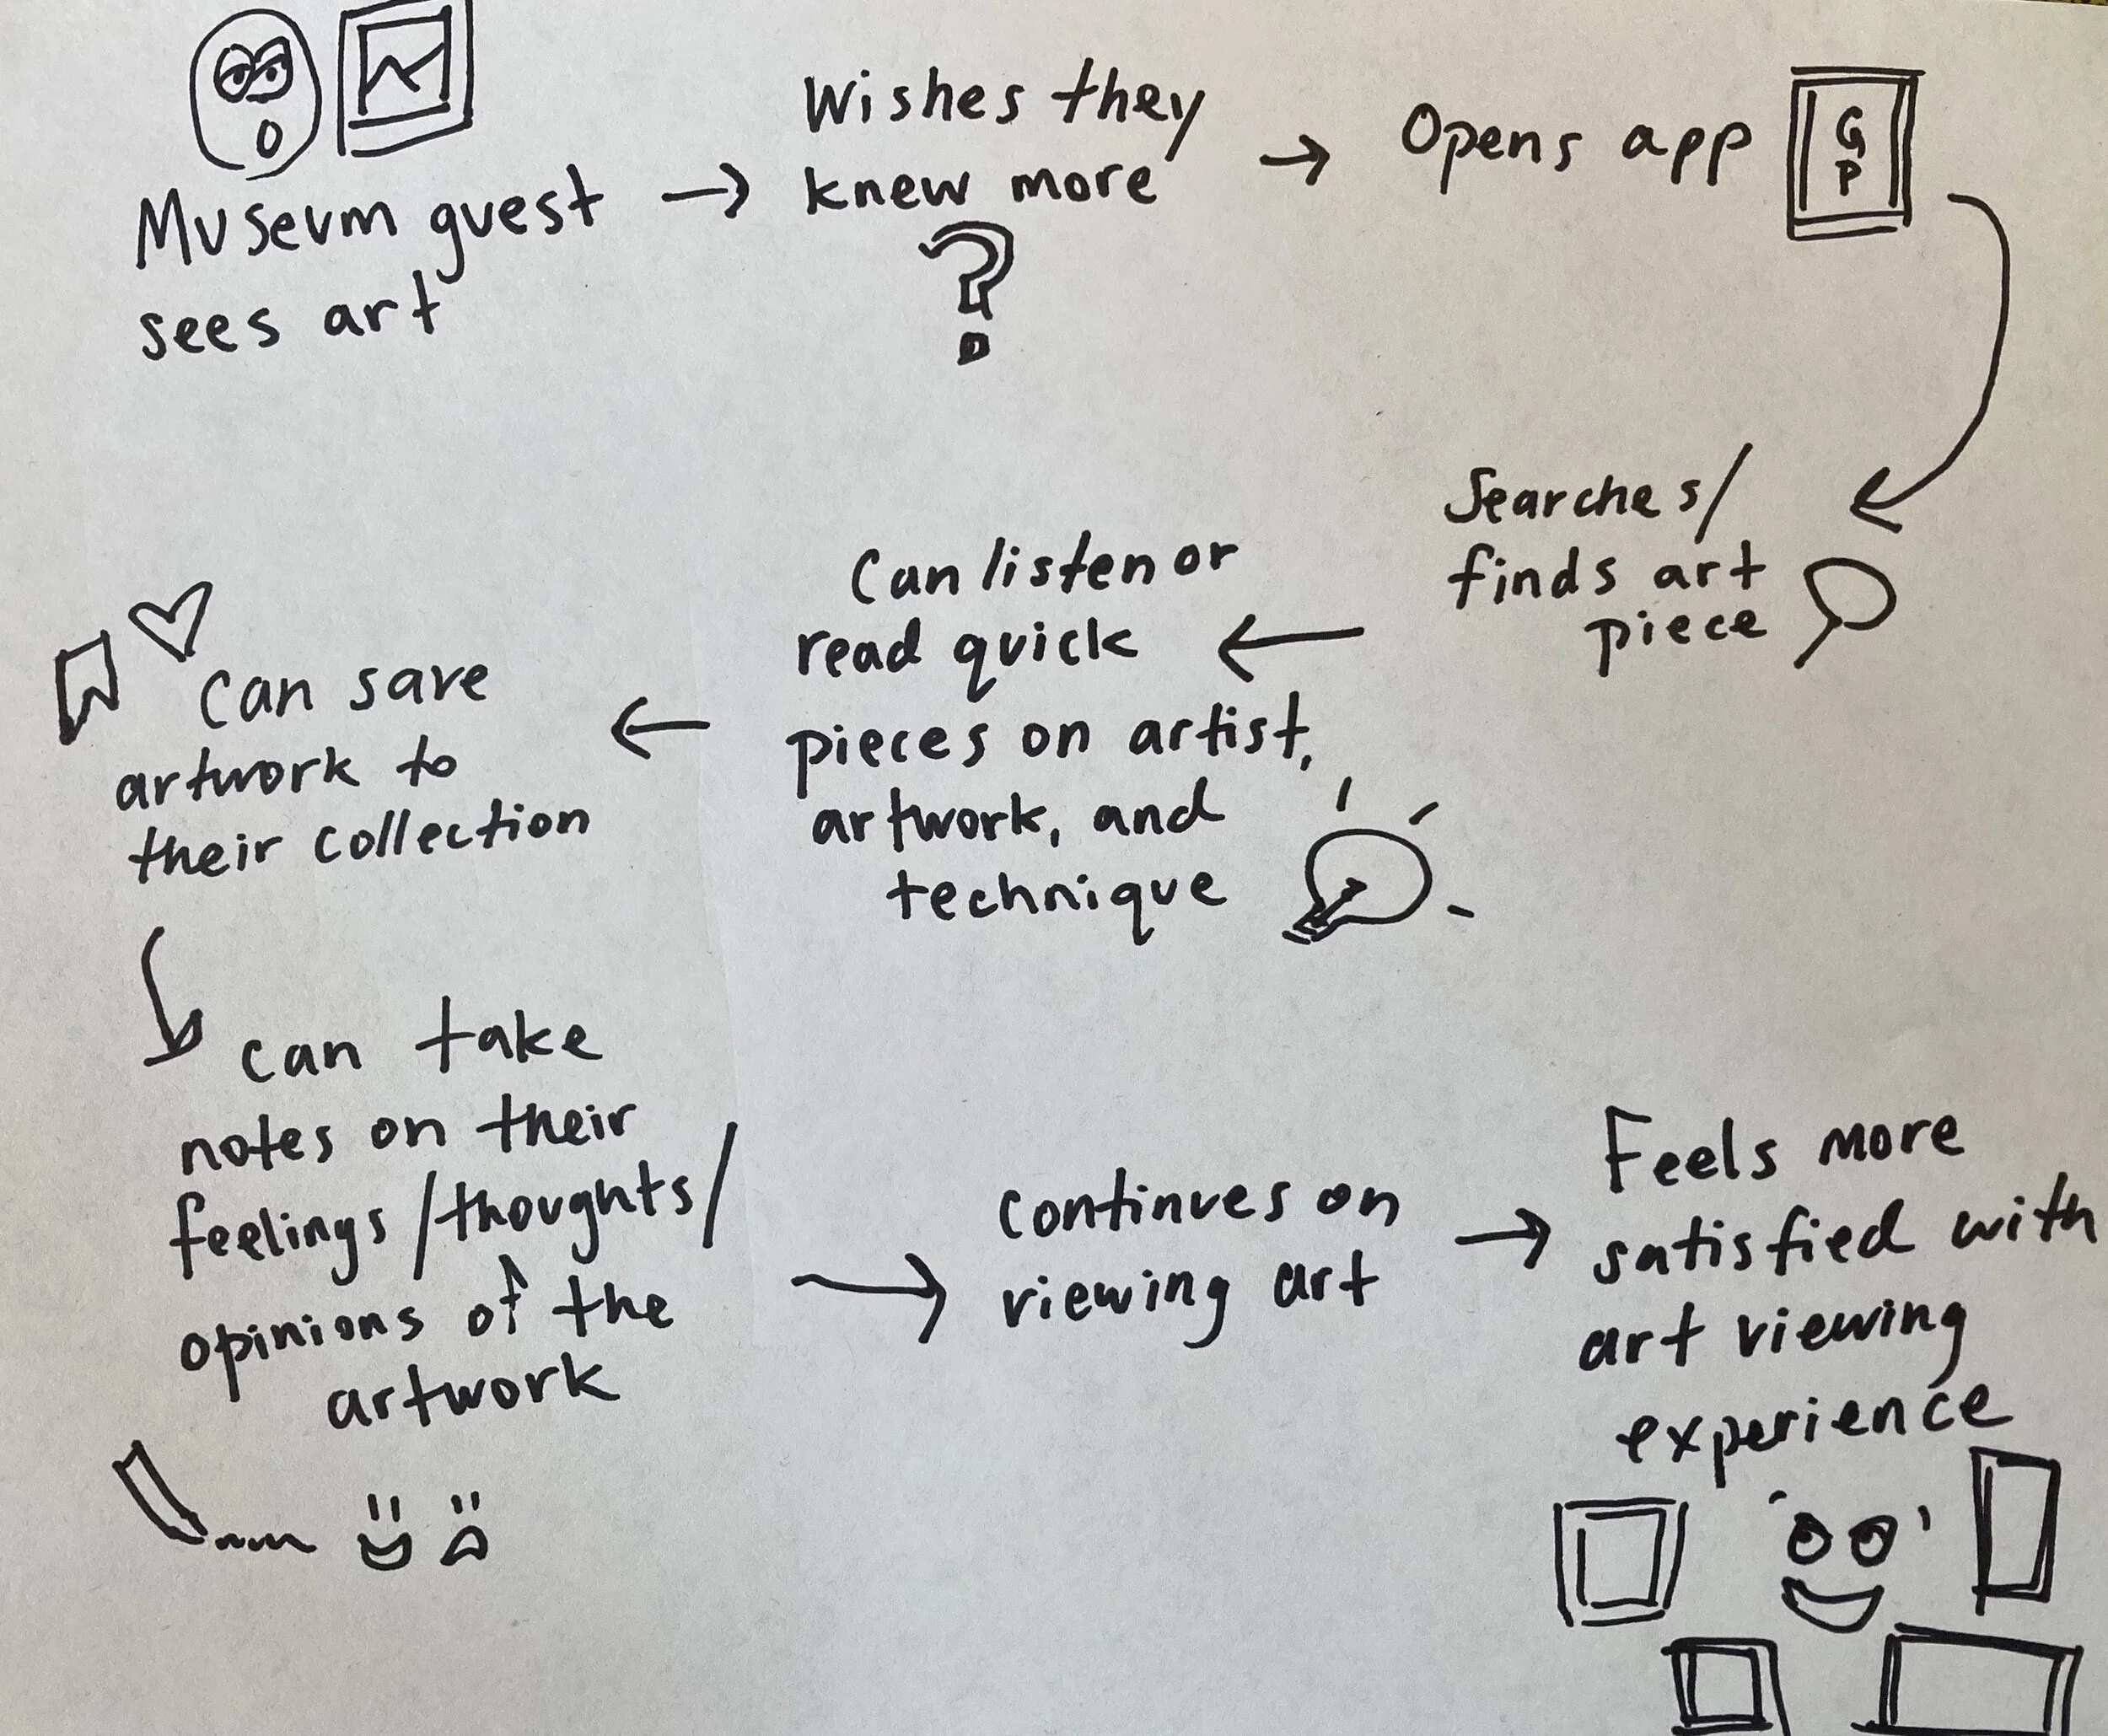 Museum guest
sees art
Wishes they
knew more
?
Opens app
G
P
Searches/
finds art
piece
Can listen or
read quick
pieces on artist,
artwork, and
technique
can save
artwork to
their collection
can take
notes on their
feelings/thoughts/
opinions of the
artwork
continues on
viewing art
Feels more
satisfied with
art viewing
experience